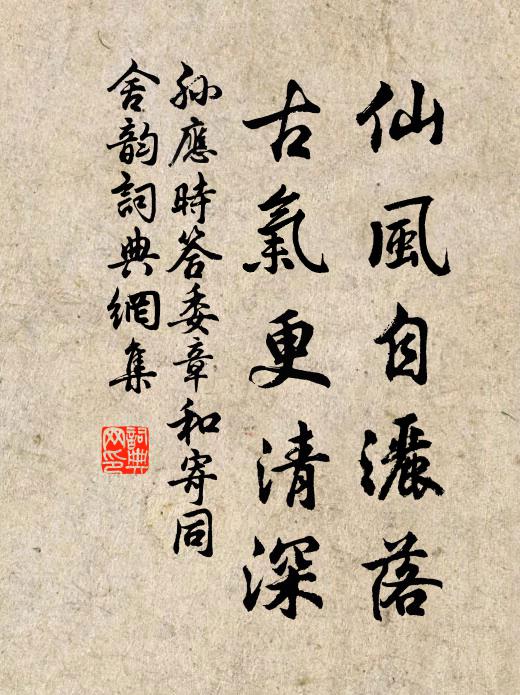 仙風自灑落
古氣更清深
孫應時答委章和寄同
舍韵詞典網集
詞典网印